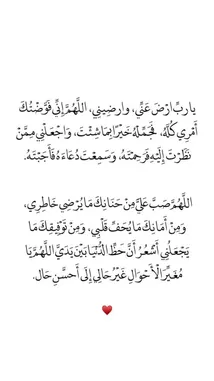 ياربِّ ارْضَ عَنِّي، وارضِيني، اللَّهُمَّ إِنِّي فَوَّضْتُكَ
أَمْرِي كُلَّهُ، فَجَمِّلْهُ خَيْرًا بِمَا شِئْتَ، وَاجْعَلْنِي مِمَّنْ
نَظَرْتَ إِلَيْهِ فَرَحِمْتَهُ، وَسَمِعْتَ دُعَاءَهُ فَأَجَبْتَهُ.
اللَّهُمَّ صُبَّ عَلَيَّ مِنْ حَنَانِكَ مَا يُرْضِي خَاطِرِي،
وَمِنْ أَمَانِكَ مَا يُحَفُّ قَلْبِي، وَمِنْ تَوْفِيقِكَ مَا
يَجْعَلُنِي أَشْعُرُ أَنَّ حَظَّ الدُّنْيَا بَيْنَ يَدَيَّ اللَّهُمَّ يَا
مُغَيِّرَ الْأَحْوَالِ غَيِّرْ حَالِي إِلَى أَحْسَنِ حَال.